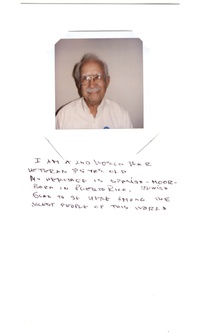 I AM A 2ND WORLD WAR
VETERAN 95 YRS OLD
MY HERITAGE IS SPANISH-MOOR-
BORN IN PUERTO RICO. JEWISH
GLAD TO BE HERE AMONG THE
NICEST PEOPLE OF THIS WORLD